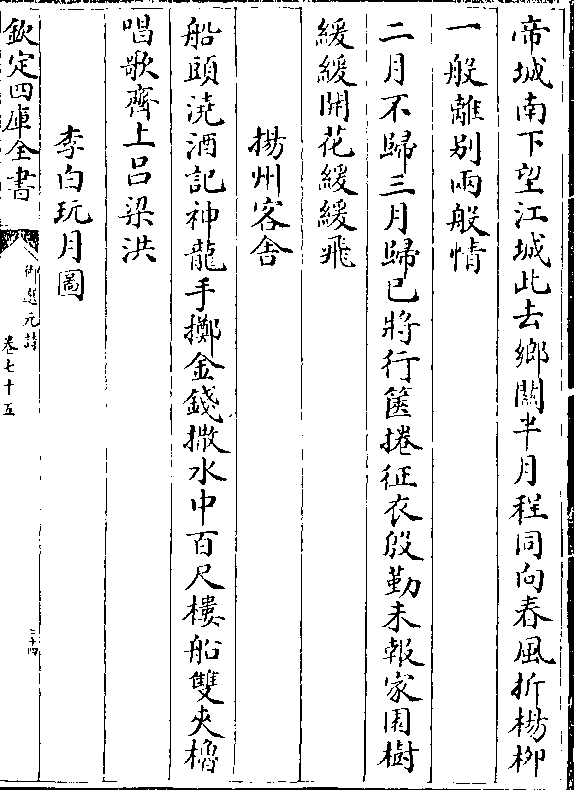 帝城南下望江城此去鄉關半月程同向春風折楊柳
一般離别兩般情
二月不歸三月歸已將行篋捲征衣殷勤未報家園樹
緩緩開花緩緩飛
揚州客舍
船頭澆酒記神龍手擲金錢撒水中百尺樓船雙夾櫓
唱歌齊上吕梁洪
李白玩月圖
欽定四庫全書
御選元詩
卷七十五
三十四